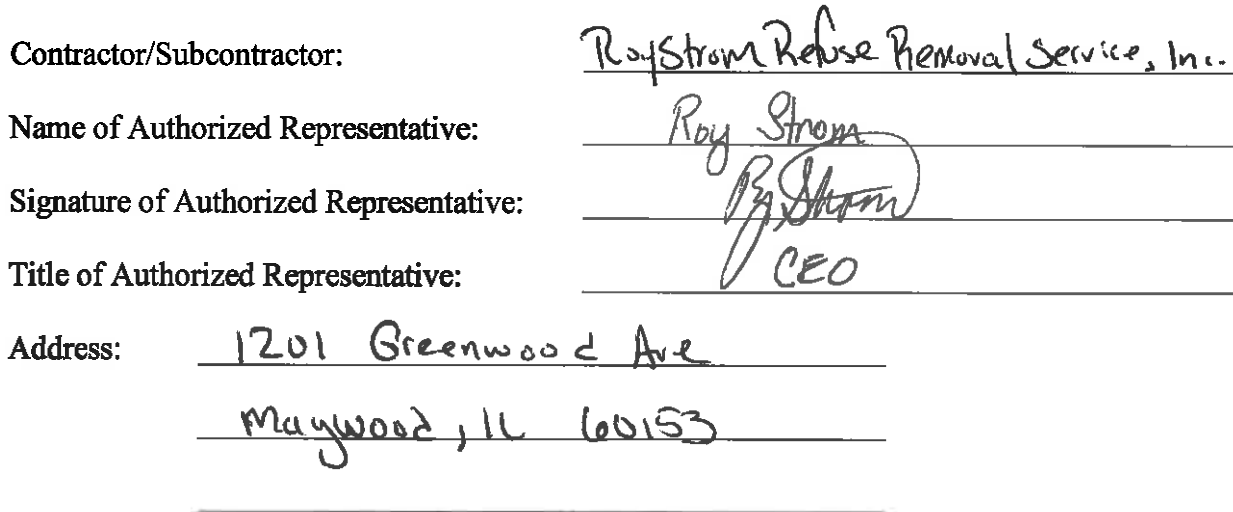 Contractor/Subcontractor: Roy Strom Refuse Removal Service, Inc.
Name of Authorized Representative: Roy Strom
Signature of Authorized Representative: Roy Strom
Title of Authorized Representative: CEO
Address: 1201 Greenwood Ave
Maywood, IL 60153